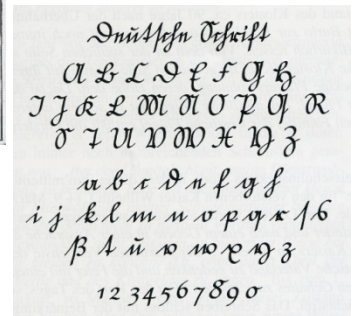 Deutsche Schrift
A B C D E F G H
I J K L M N O P Q R
S T U V W X Y Z
a b c d e f g h
i j k l m n o p q r ſ s
ß t u v w x y z
1 2 3 4 5 6 7 8 9 0